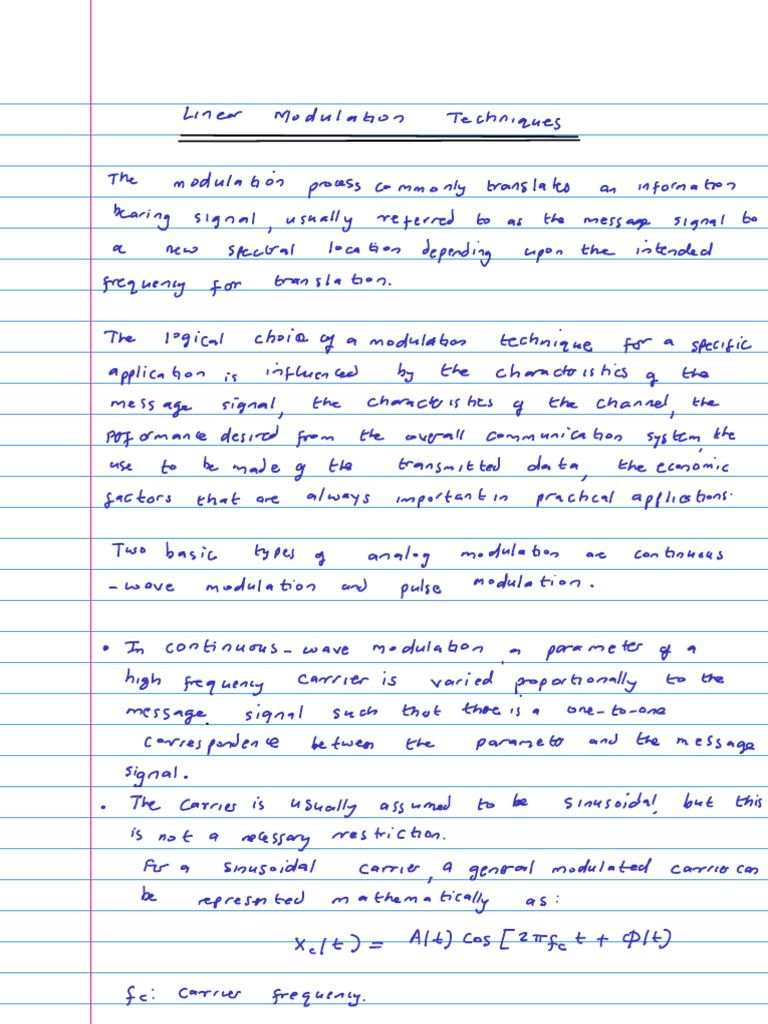 Linear Modulation Techniques
The modulation process commonly translates an information
bearing signal, usually referred to as the message signal to
a new spectral location depending upon the intended
frequency for translation.
The logical choice of a modulation technique for a specific
application is influenced by the characteristics of the
message signal, the characteristics of the channel, the
performance desired from the overall communication system, the
use to be made of the transmitted data, the economic
factors that are always important in practical applications.
Two basic types of analog modulation are continuous
-wave modulation and pulse modulation.
• In continuous-wave modulation, a parameter of a
high frequency carrier is varied proportionally to the
message signal such that there is a one-to-one
correspondence between the parameter and the message
signal.
• The carrier is usually assumed to be sinusoidal, but this
is not a necessary restriction.
For a sinusoidal carrier, a general modulated carrier can
be represented mathematically as:
Xc(t) = A(t) cos [2πfc t + Φ(t)
fc: carrier frequency.